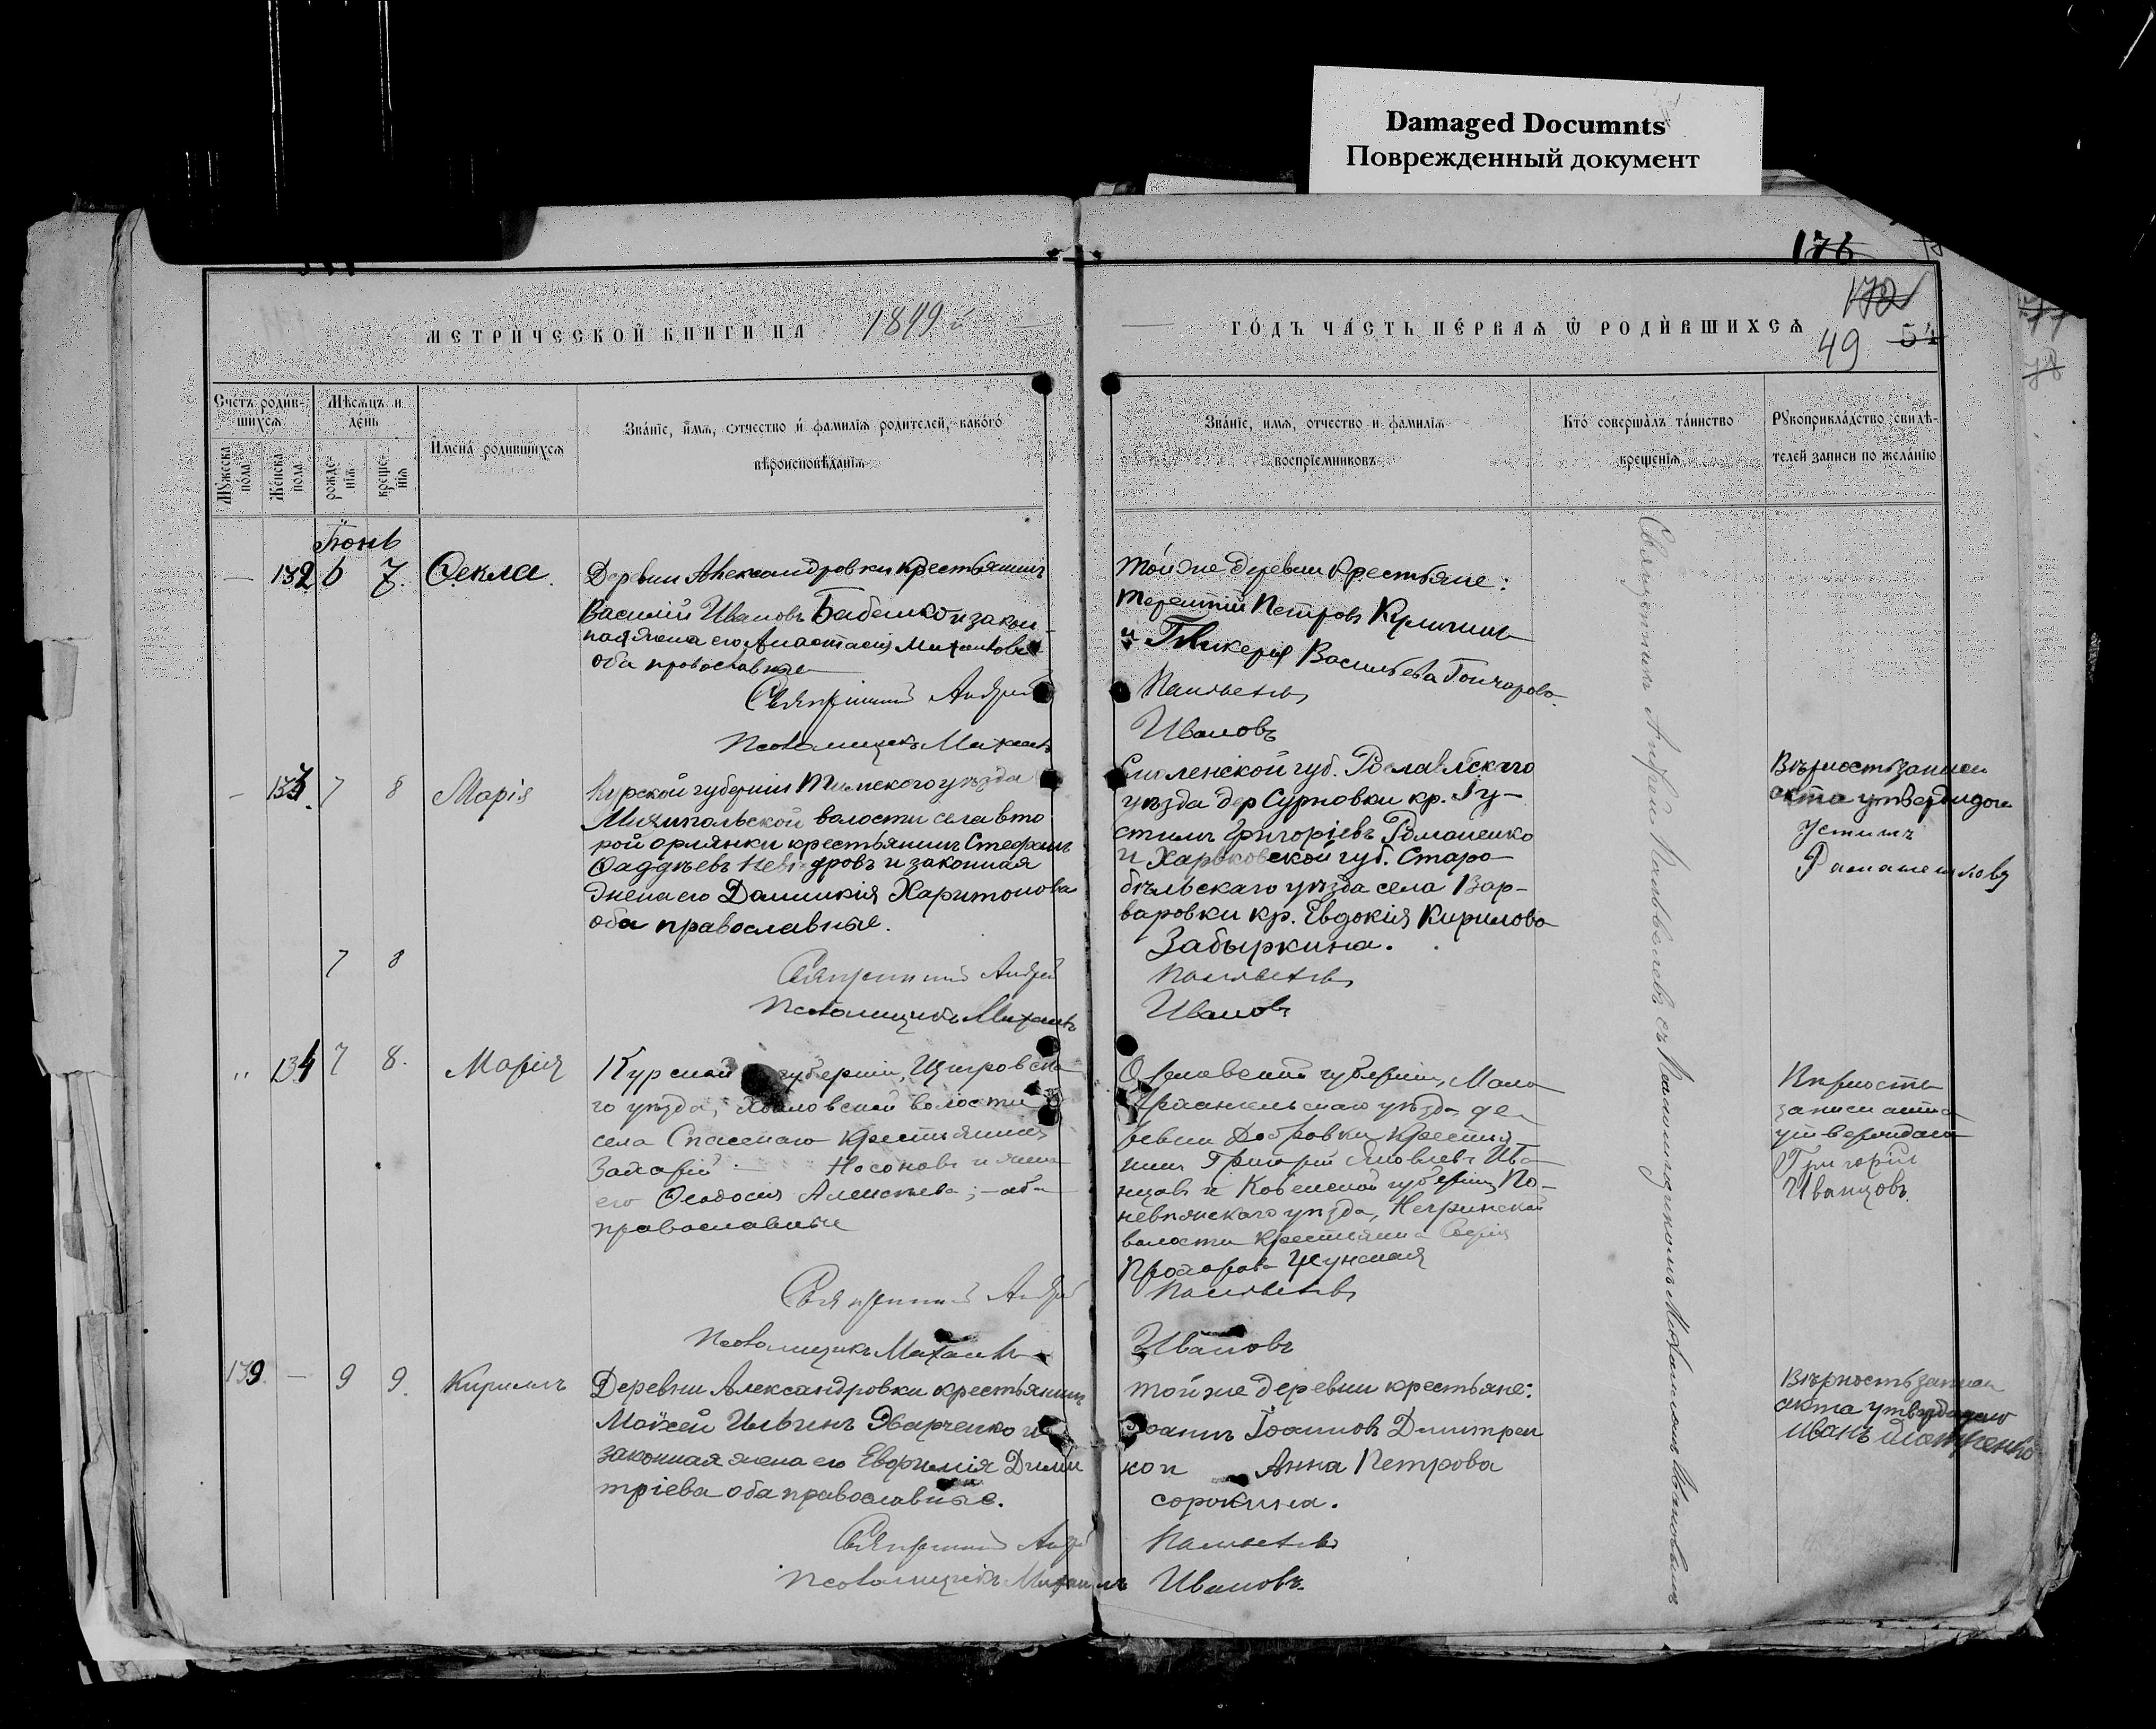 Damaged Documnts
Поврежденный документ
176
172
49 54
МЕТРИЧЕСКОЙ КНИГИ НА 1899 й
ГОДЪ ЧАСТЬ ПЕРВАЯ Ѿ РОДИВШИХСЯ
Счетъ родив-
шихся
Мужеска
пола
Женска
пола
Мѣсяцъ и
день
рожде-
нія
креще-
нія
Имена родившихся
Званіе, имя, отчество и фамилія родителей, какого
вѣроисповѣданія
Званіе, имя, отчество и фамилія
воспріемниковъ
Кто совершалъ таинство
крещенія
Рукоприкладство свидѣ-
телей записи по желанію
Іюнь
— 132 6 7. Ѳекла.
Деревни Александровки крестьянинъ
Василій Ивановъ Бабенко и закон-
ная жена его Анастасія Михаилова
оба православные
Священникъ Андрей
Псаломщикъ Михаилъ
Той же деревни крестьяне:
Терентій Петровъ Куличинъ
и Гликерія Васильева Гончарова.
Ивановъ
— 133. 7 8 Марія
Курской губерніи Тимскаго уѣзда
волости села вто
рой орлянки крестьянинъ Стефанъ
Ѳаддѣевъ и законная
жена его Домникія Харитонова
оба православные.
7 8
Священникъ Андрей
Псаломщикъ Михаилъ
Смоленской губ. Рославльскаго
уѣзда дер Сурновки кр. Гу-
стинъ Григоріевъ Романенко
и Харьковской губ. Старо-
бѣльскаго уѣзда села Вар-
варовки кр. Евдокія Кирилова
Забыркина.
Ивановъ
Вѣрность записи
акта утверждаю
Устинъ
„ 134 7 8. Марія
Курской губерніи, Щигровска
го уѣзда, волости
села Спасскаго крестьянинъ
Захарій Носоновъ и жена
его Ѳеодосія Алексѣева; – оба
православные
Священникъ Андрей
Псаломщикъ Михаилъ
Орловской губерніи, Мало
Архангельскаго уѣзда де-
ревни Добровки крестья
нинъ Григорій Яковлевъ Ива
нцовъ и Ковенской губерніи По-
невѣжскаго уѣзда,
волости крестьянка Софія
Прохорова
Ивановъ
Вѣрность
записи акта
утверждаю
Григорій
Иванцовъ.
139. — 9 9. Кириллъ
Деревни Александровки крестьянинъ
Моѵсей Ильинъ и
законная жена его Евфимія Дими
тріева оба православные.
Священникъ Андрей
Псаломщикъ Михаилъ
Той же деревни крестьяне:
Іоаннъ Іоанновъ Дмитрен
ко и Анна Петрова
сорокина.
Ивановъ.
Вѣрность записи
акта утверждаю
Иванъ
Священникъ Андрей съ Псаломщикомъ Михаиломъ Ивановымъ